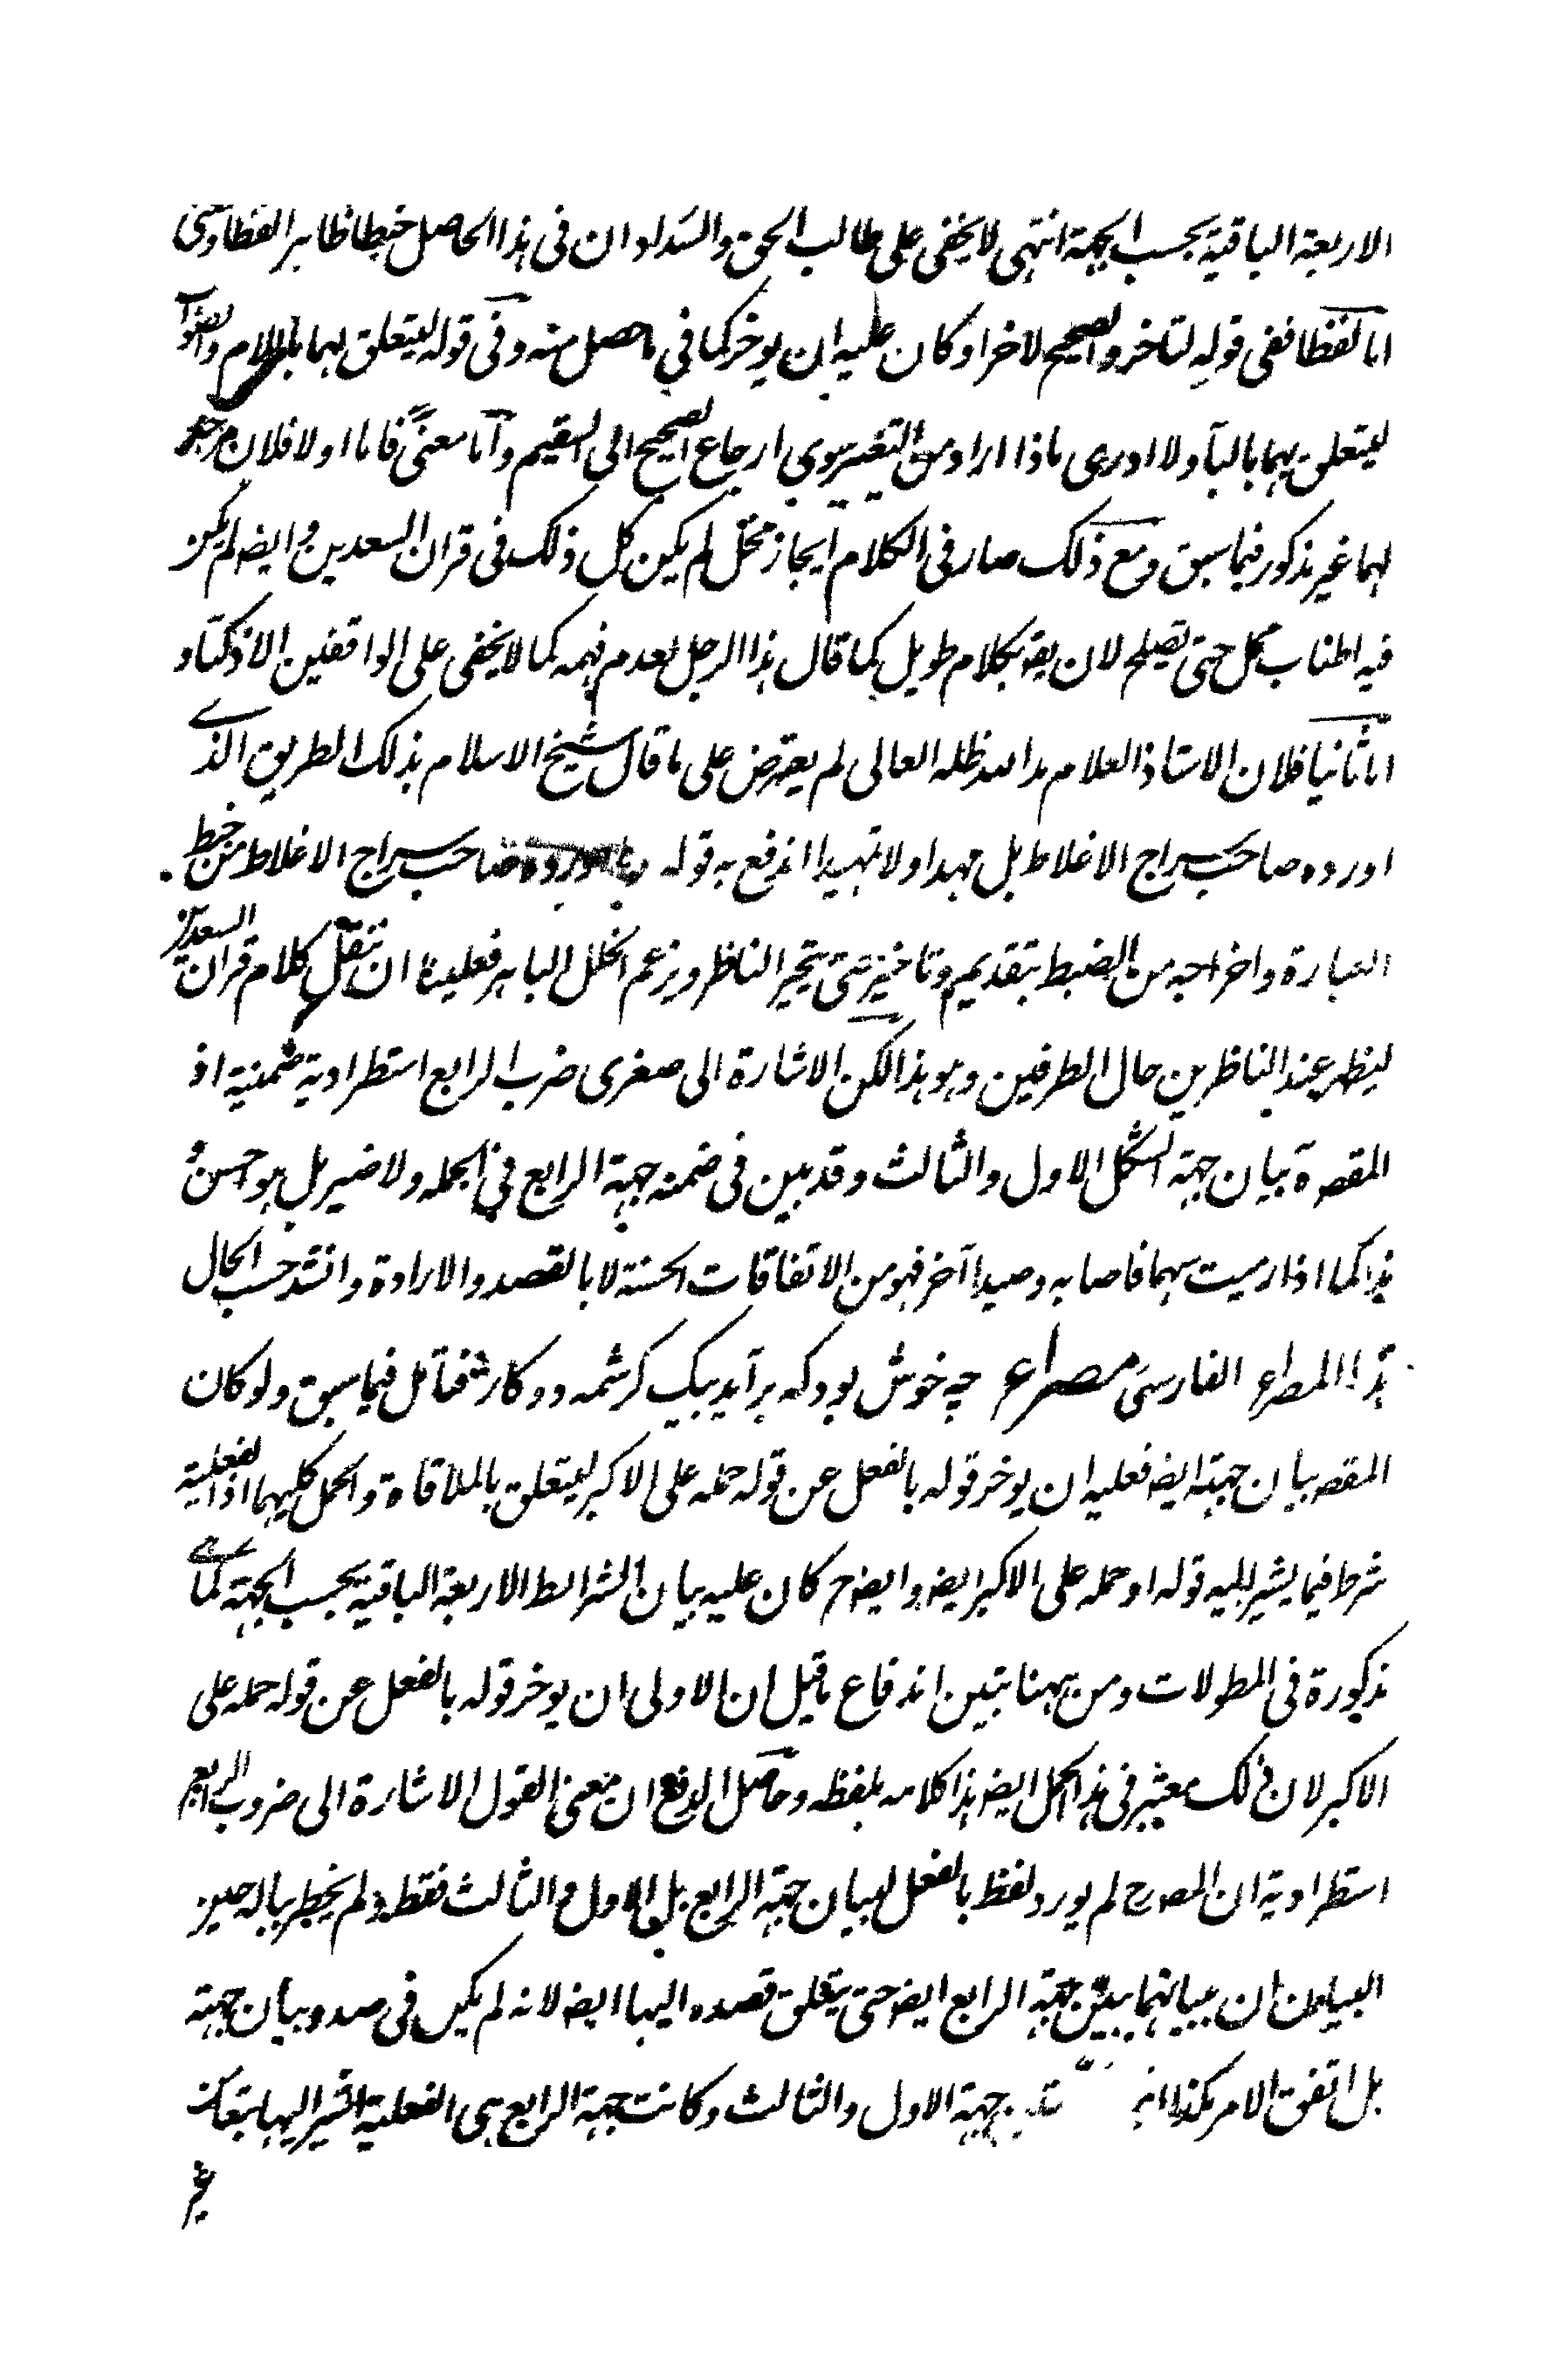 الاربعة الباقية بحسب الجهة انتهى لا يخفى على طالب الحق والسداد ان فى هذا الحاصل خبطا ظاهر الفظا ومعنى
اما لفظا ففى قوله لتاخر والصحيح لاخر او كان عليه ان يوخر كما في ما حصل منه وفى قوله ليتعلق لهما باللام والصواب
ليتعلق بهما بالباء ولا ادرى ماذا اراد من التغير سوى ارجاع الصحيح الى السقيم واما معنىً فاما اولا فلان مرجع
لهما غير مذكور فيما سبق ومع ذلك صار فى الكلام ايجاز مخل لم يكن كل ذلك فى قران السعدين وايض لم يكن
فيه اطناب ممل حتى يصلح لان يقو بكلام طويل كما قال هذا الرجل بعدم فهمه كما لا يخفى على الواقفين الاذكياء و
اما ثانيا فلان الاستاذ العلام مد الله ظله العالى لم يعترض على ما قال شيخ الاسلام بذلك الطريق الذے
اورده صاحب سراج الاغلاط بل مهد اولا تمهيدا اندفع به قوله صاحب سراج الاغلاط من خبط
العبارة واخراجه من الضبط بتقديم وتاخير حتى يتحير الناظر ويزعم الخلل الباهر فعلينا ان ننقل كلام قران السعدين
ليظهر عند الناظرين حال الطرفين وهو هذا لكن الاشارة الى صغرى ضرب الرابع استطرادية ضمنية اذ
المقصود بيان جهة الشكل الاول والثالث وقد بين فى ضمنه جهة الرابع في الجمله ولا ضير بل هو حسن
هذا كما اذا رميت سهما فاصابه وصيدا آخر فهو من الاتفاقات الحسنة لا بالقصد والارادة وانشد حسب الحال
هذا المصراع الفارسى مصراع چه خوش بود كه برآيد بيك كرشمه دو كار فتامل فيما سبق ولو كان
المقصه بيان جهته ايض فعليه ان يوخر قوله بالفعل عن قوله حمله على الاكبر ليتعلق بالملاقاة والحمل كليهما اذ الفعلية
شرط فيما يشير اليه قوله او حمله على الاكبر ايض وايض ح كان عليه بيان الشرائط الاربعة الباقية بحسب الجهة كما هے
مذكورة فى المطولات ومن ههنا تبين اندفاع ما قيل ان الاولى ان يوخر قوله بالفعل عن قوله حمله على
الاكبر لان ذلك معتبر فى هذا الحمل ايض هذا كلامه بلفظه وحاصل الدفع ان معنى القول الاشارة الى ضروب الرابع
استطرادية ان المصرح لم يورد لفظ بالفعل لبيان جهة الرابع بل الاول والثالث فقط ولم يخطر بباله حين
البيان ان ببيانهما يبين جهة الرابع ايض حتى يتعلق قصده اليها ايض لانه لم يكن فى صدد بيان جهته
بل اتفق الامر هكذا جهة الاول والثالث وكانت جهة الرابع هى الفعلية اشير اليها بتعاكس